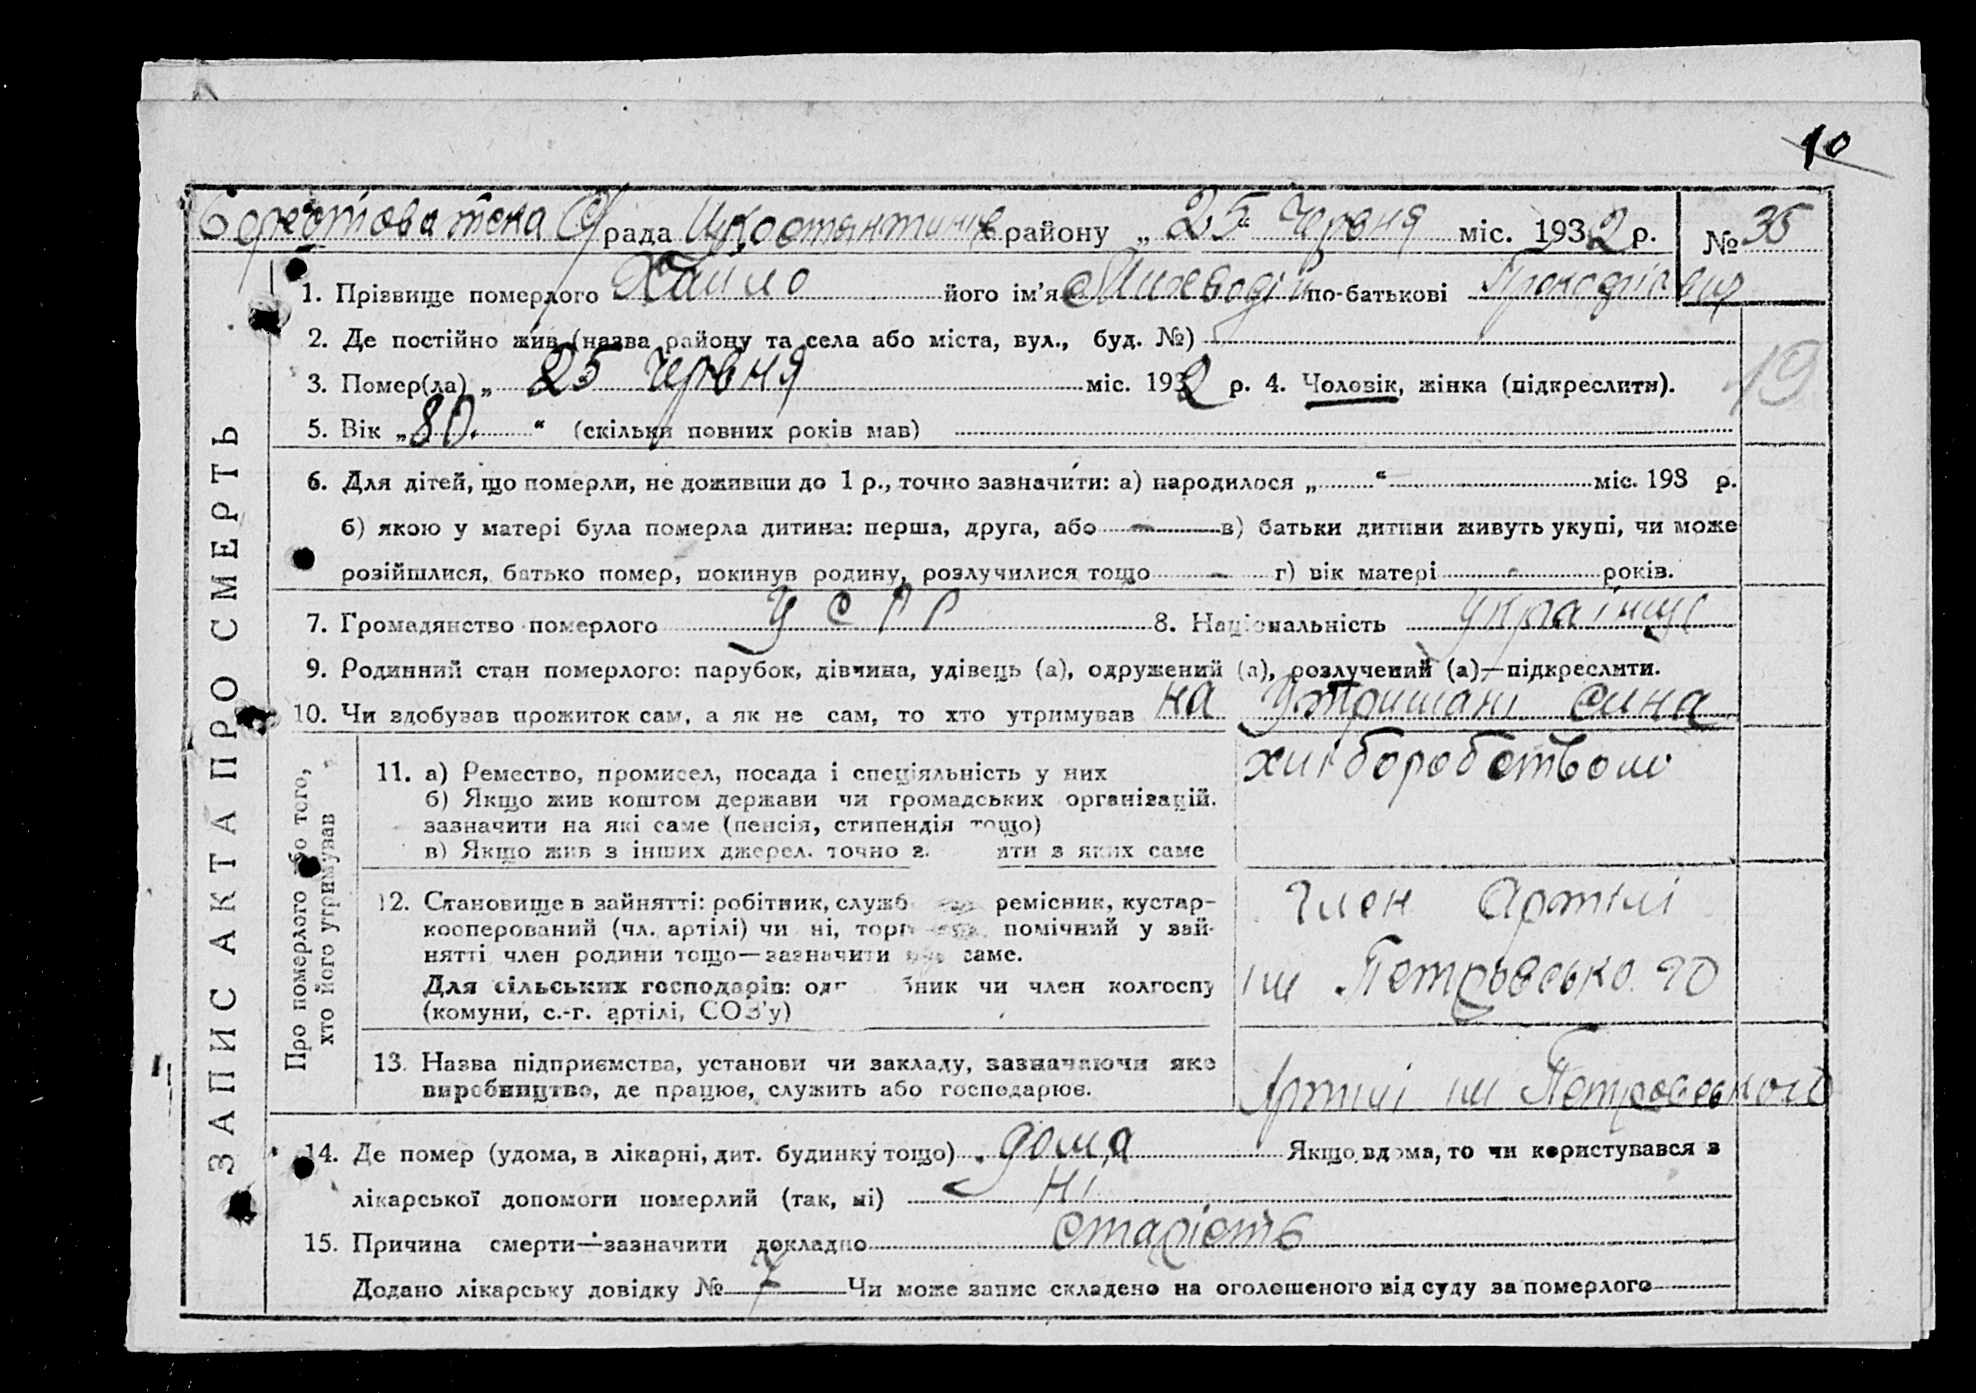 10
Берестоватська С/рада Ч.Костянтинів району „ 25 “ Червня міс. 1932 р. № 35
1. Прізвище померлого Хайло його ім'я по-батькові
2. Де постійно жив (назва району та села або міста, вул., буд. №)
3. Помер(ла) „ 25 Червня міс. 1932 р. 4. Чоловік, жінка (підкреслити).
19
5. Вік „ 80. “ (скільки повних років мав)
6. Для дітей, що померли, не доживши до 1 р., точно зазначити: а) народилося „ “ міс. 193 р.
б) якою у матері була померла дитина: перша, друга, або — в) батьки дитини живуть укупі, чи може
розійшлися, батько помер, покинув родину, розлучилися тощо - г) вік матері - років.
7. Громадянство померлого УСРР 8. Національність українець
9. Родинний стан померлого: парубок, дівчина, удівець (а), одружений (а), розлучений (а)—підкреслити.
10. Чи здобував прожиток сам, а як не сам, то хто утримував на утримані сина
ЗАПИС АКТА ПРО СМЕРТЬ
Про померлого або того,
хто його утримував
11. а) Ремество, промисел, посада і спеціяльність у них хліборобством
б) Якщо жив коштом держави чи громадських організацій,
зазначити на які саме (пенсія, стипендія тощо)
в) Якщо жив з інших джерел, точно з ити з яких саме
12. Становище в зайнятті: робітник, служб ремісник, кустар-
кооперований (чл. артілі) чи ні, торг помічний у зай-
нятті член родини тощо—зазначити що саме.
Для сільських господарів: од бник чи член колгоспу
(комуни, с.-г. артілі, СОЗ'у)
Член Артілі
ім Петровсько го
13. Назва підприємства, установи чи закладу, зазначаючи яке
виробництво, де працює, служить або господарює.
Артілі ім Петровського
14. Де помер (удома, в лікарні, дит. будинку тощо) дома Якщо вдома, то чи користувався з
лікарської допомоги померлий (так, ні) Ні
15. Причина смерти—зазначити докладно старість
Додано лікарську довідку № Чи може запис складено на оголошеного від суду за померлого